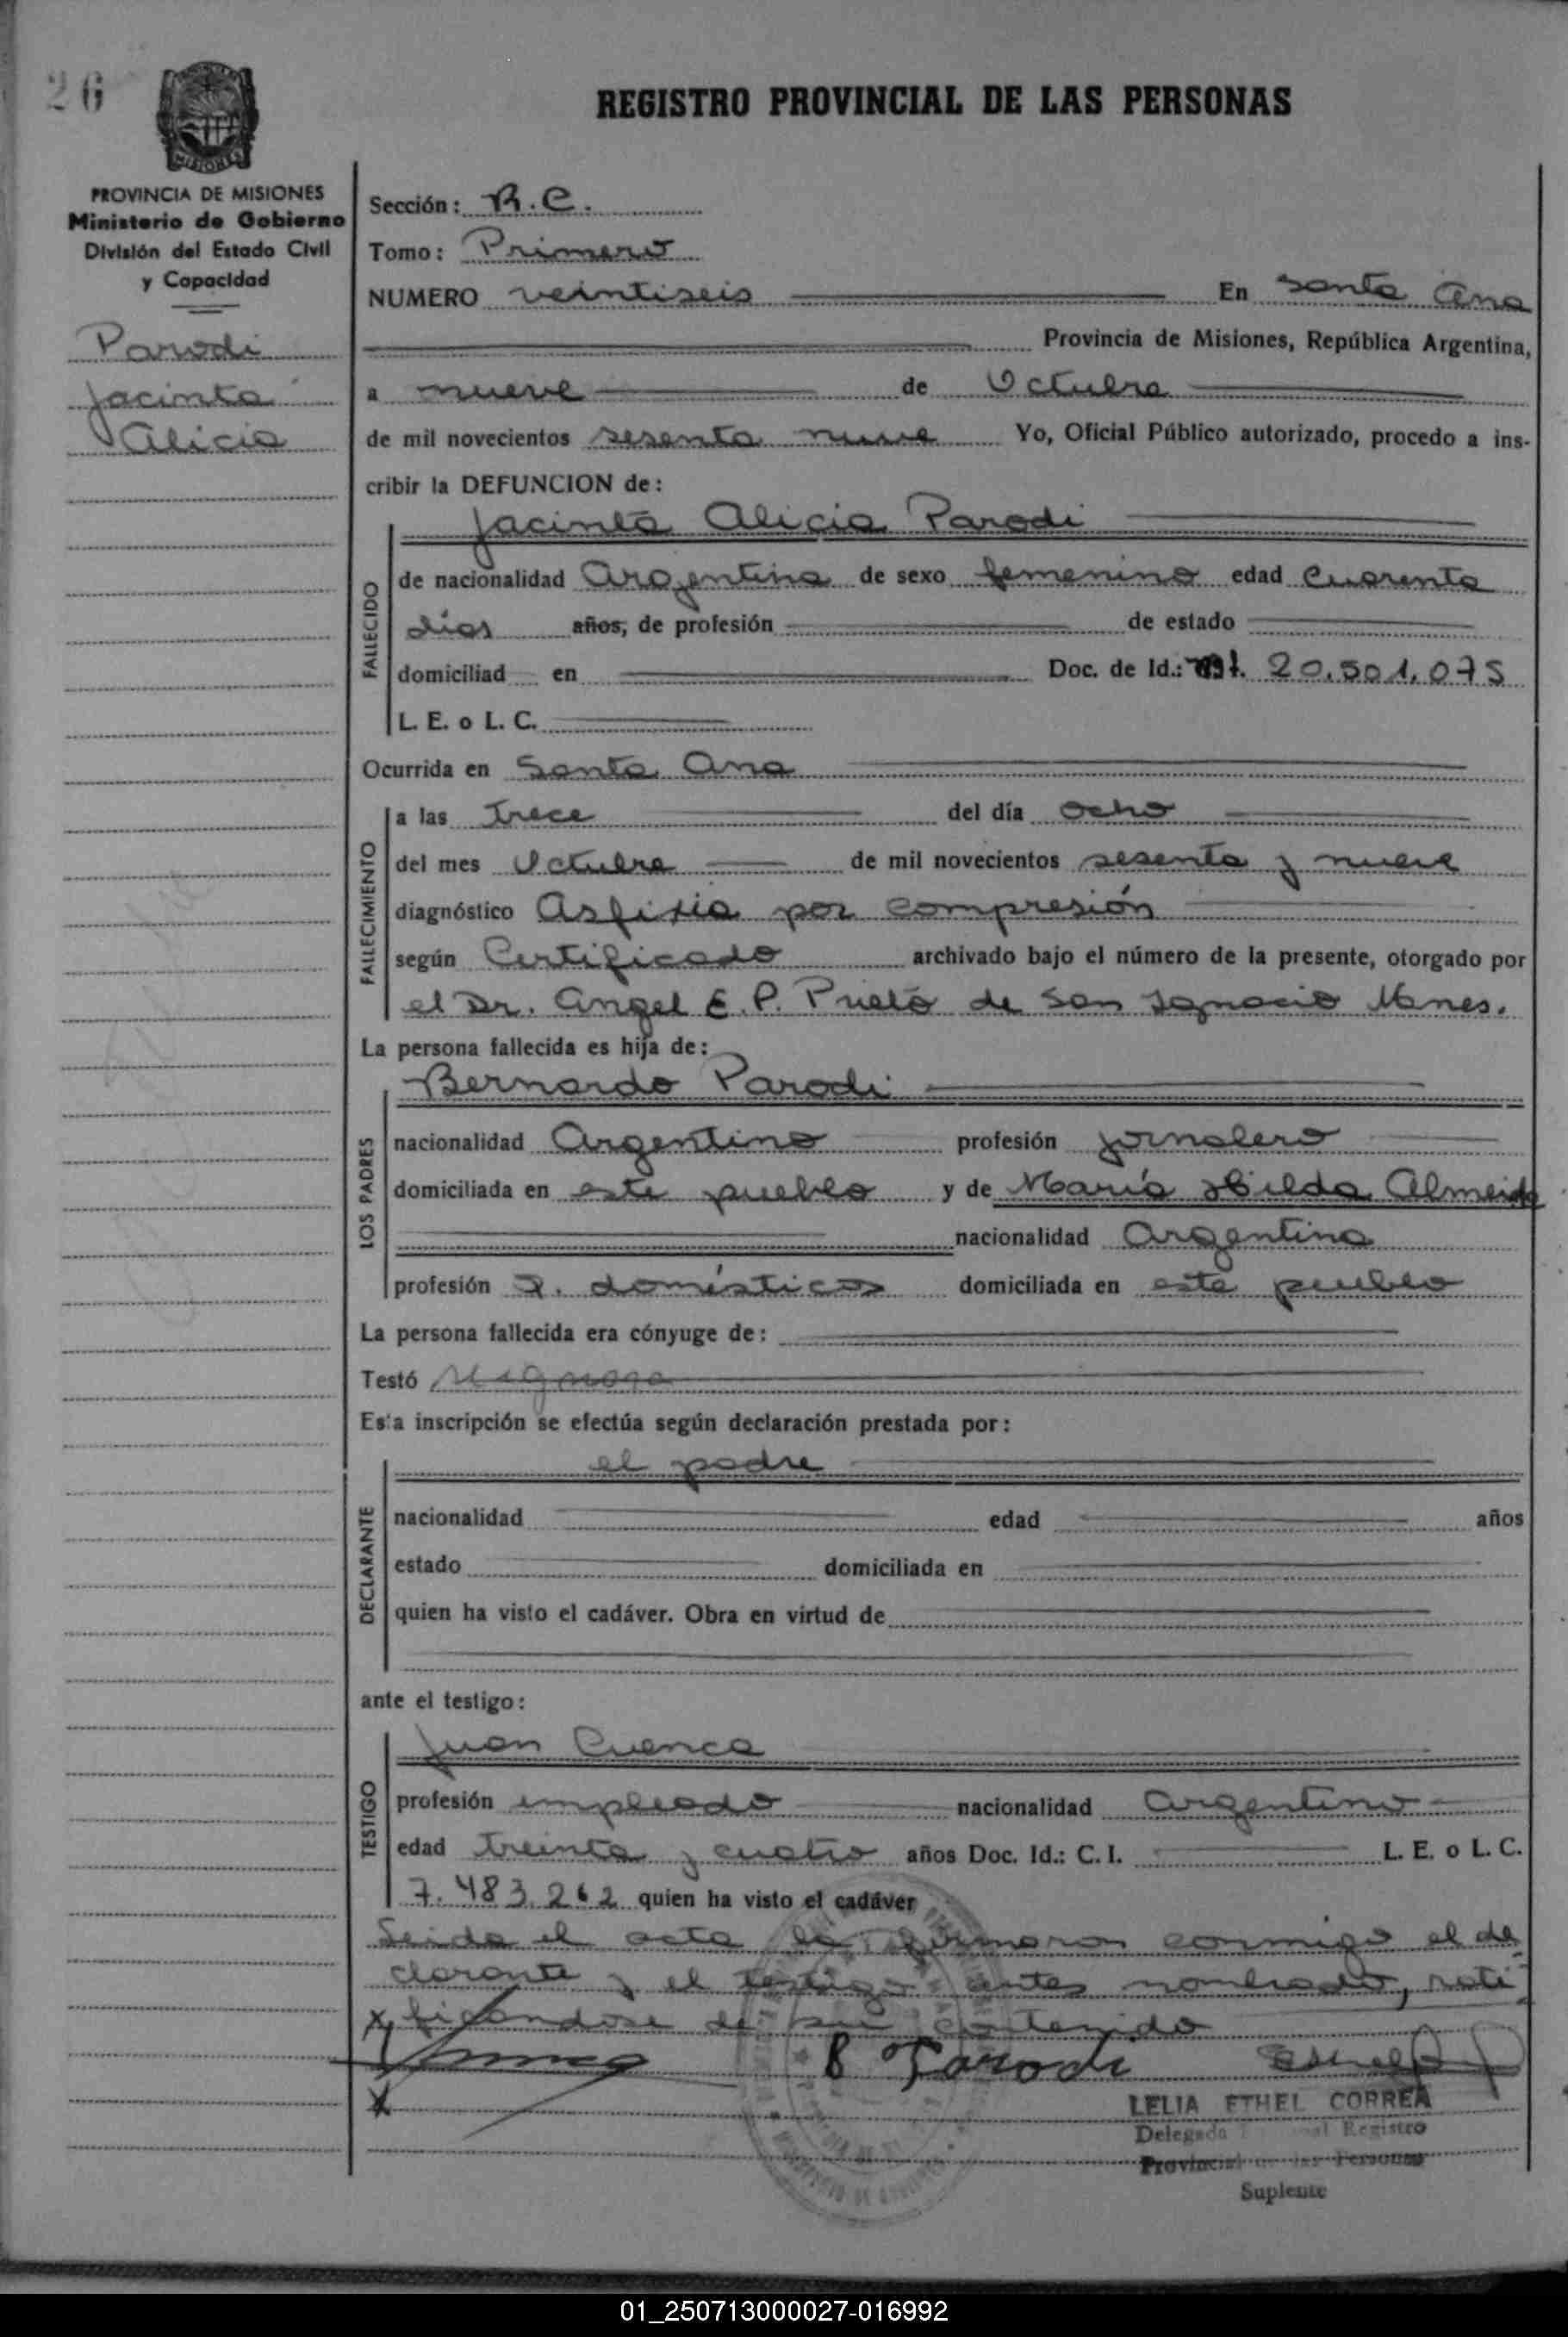 26
REGISTRO PROVINCIAL DE LAS PERSONAS
MISIONES
PROVINCIA DE MISIONES
Ministerio de Gobierno
División del Estado Civil
y Capacidad
Parodi
Jacinta
Alicia
Sección: R.C.
Tomo: Primero
NUMERO veintiseis En Santa Ana
Provincia de Misiones, República Argentina,
a nueve de Octubre
de mil novecientos sesenta nueve Yo, Oficial Público autorizado, procedo a ins-
cribir la DEFUNCION de:
Jacinta Alicia Parodi
FALLECIDO
de nacionalidad Argentina de sexo femenino edad Cuarenta
días años, de profesión de estado
domiciliad en Doc. de Id.: 20.501.075
L. E. o L. C.
Ocurrida en Santa Ana
FALLECIMIENTO
a las Trece del día ocho
del mes Octubre de mil novecientos sesenta y nueve
diagnóstico Asfixia por compresión
según Certificado archivado bajo el número de la presente, otorgado por
el Dr. Angel E. P. Prieto de San Ignacio Mnes.
La persona fallecida es hija de:
Bernardo Parodi
LOS PADRES
nacionalidad Argentino profesión jornalero
domiciliada en este pueblo y de María Hilda Almeida
nacionalidad Argentina
profesión Q. domésticos domiciliada en este pueblo
La persona fallecida era cónyuge de:
Testó se ignora
Esta inscripción se efectúa según declaración prestada por:
el padre
DECLARANTE
nacionalidad edad años
estado domiciliada en
quien ha visto el cadáver. Obra en virtud de
ante el testigo:
Juan Cuenca
TESTIGO
profesión empleado nacionalidad Argentino
edad treinta y cuatro años Doc. Id.: C. I. L. E. o L. C.
7.483.262 quien ha visto el cadáver
Leida el acta la firmaron conmigo el de
clarante y el testigo antes nombrado, rati
ficandose de su contenido
B Parodi
LELIA ETHEL CORREA
Delegada Registro
Provincial de las Personas
Suplente
01_250713000027-016992